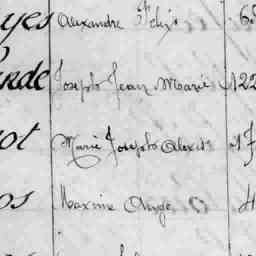 yes Alexandre Felix 6
rde Joseph Jean Marie 122
ot Marie Joseph Alexis
os Maxime Ange